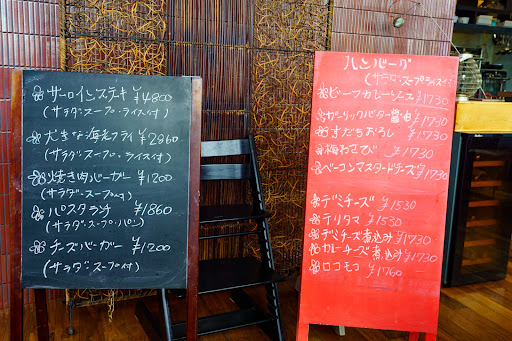 サーロインステーキ ¥4800
(サラダ・スープ・ライス付)
大きな海老フライ ¥2860
(サラダ・スープ・ライス付)
焼き肉バーガー ¥1200
(サラダ・スープ付)
パスタランチ ¥1860
(サラダ・スープ・パン)
チーズバーガー ¥1200
(サラダ・スープ付)
ハンバーグ
(サラダ・スープライス付)
ビーフカレーソース ¥1730
ガーリックバター醤油 ¥1730
すだちおろし ¥1730
梅わさび ¥1730
ベーコンマスタードチーズ ¥1730
デミチーズ ¥1530
テリタマ ¥1530
デミチーズ煮込み ¥1730
カレーチーズ煮込み ¥1730
ロコモコ ¥1760